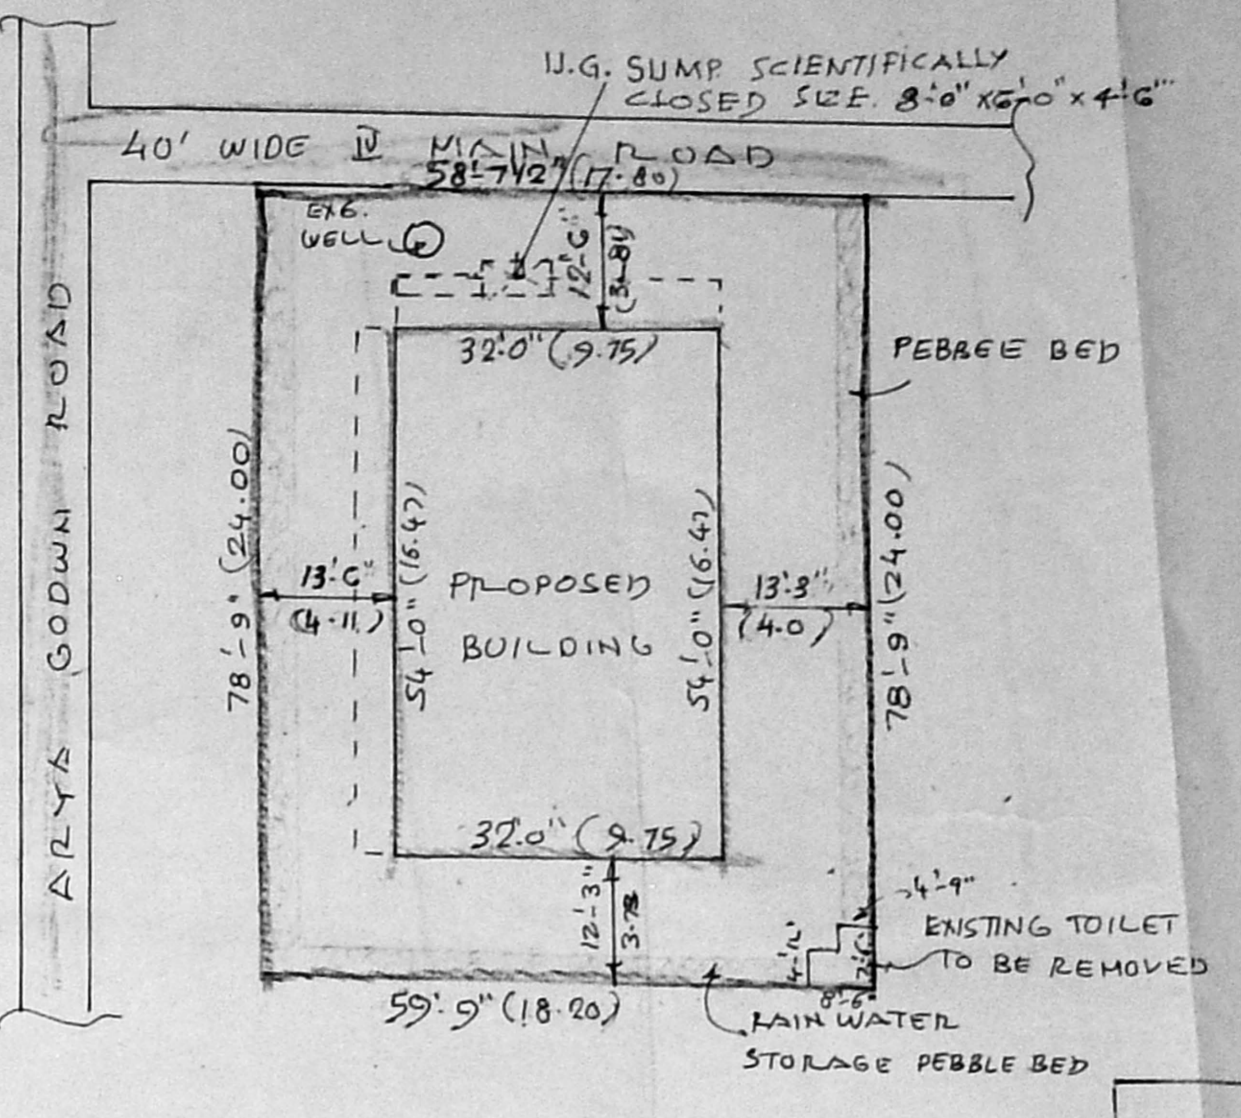 U.G. SUMP. SCIENTIFICALLY
CLOSED SIZE. 8'-0" x 6'-0" x 4'-6"
40' WIDE IV MAIN ROAD
58'-7 1/2" (17.80)
EXG.
WELL
12'-6"
(3.81)
32'-0" (9.75)
PEBBLE BED
ARYA GODOWN ROAD
78'-9" (24.00)
13'-6"
(4.11)
54'-0" (16.47)
PROPOSED
BUILDING
54'-0" (16.47)
13'-3"
(4.0)
78'-9" (24.00)
32'-0" (9.75)
12'-3"
3.73
4'-9"
EXISTING TOILET
TO BE REMOVED
8'-6"
59'-9" (18.20)
RAIN WATER
STORAGE PEBBLE BED